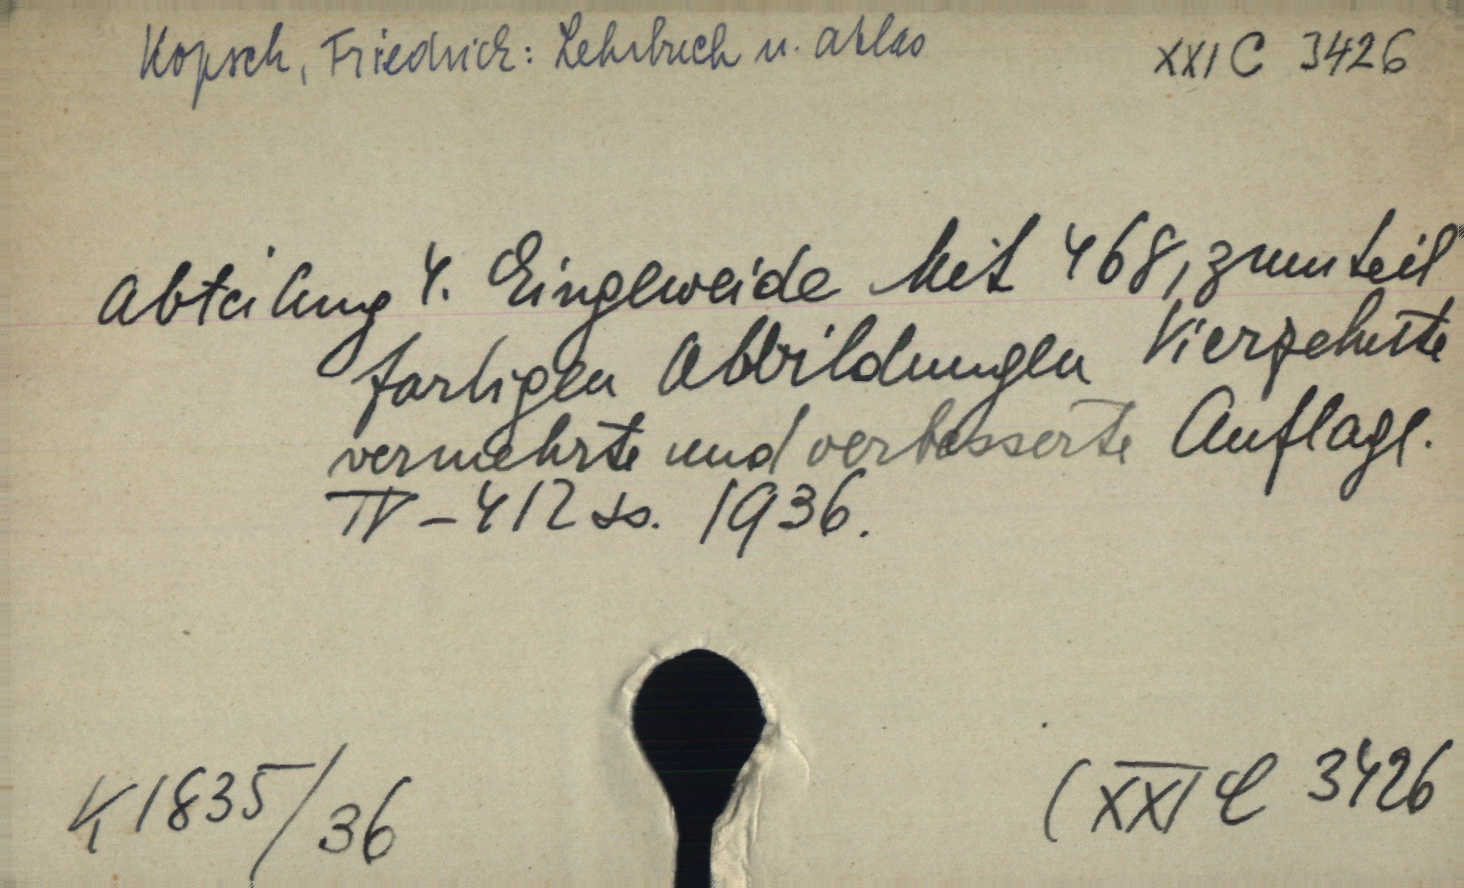 Kopsch, Friedrich: Lehrbuch u. atlas XXI C 3426
Abteilung 4. Eingeweide Mit 468, zum teil
farbigen Abbildungen Vierzehnte
vermehrte und verbesserte Auflage.
IV - 412 ss. 1936.
K 1835/36
(XXI C 3426